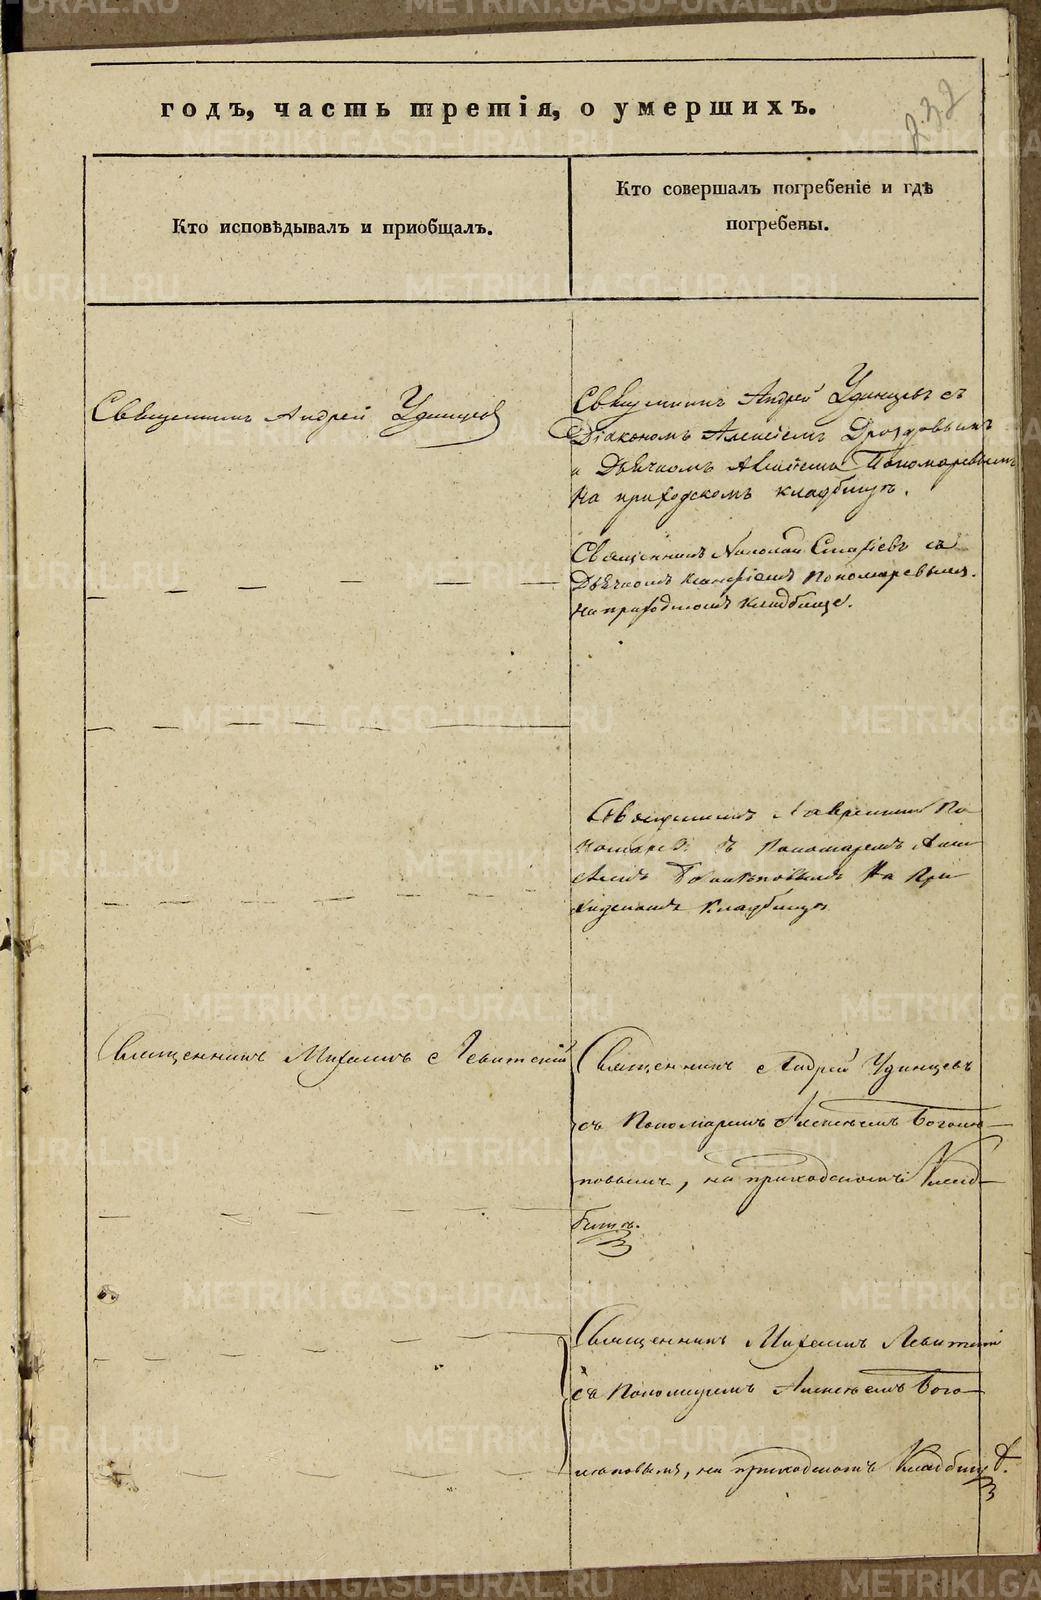 232
годъ, часть третія, о умершихъ.
Кто исповѣдывалъ и приобщалъ.
Кто совершалъ погребеніе и гдѣ
погребены.
Священникъ Андрей Удинцевъ
Священникъ Андрей Удинцевъ съ
Діакономъ Алексіемъ Дроздовымъ
и Дьячкомъ Пономаревымъ
на приходскомъ кладбищѣ.
Священникъ съ
Дьячкомъ Пономаревымъ.
на приходскомъ кладбище.
Священникъ Лаврентій По
номаревъ съ Пономаремъ Алек
На При
ходскомъ Кладбищѣ
Священникъ Михаилъ Левитскій
Священникъ Андрей Удинцевъ
съ Пономаремъ Алексѣемъ Богомо
повымъ, на приходскомъ Клад-
бищѣ.
Священникъ Михаилъ Левитскій
съ Пономаремъ Алексѣемъ Бого-
на приходскомъ Кладбищѣ.
METRIKI.GASO-URAL.RU